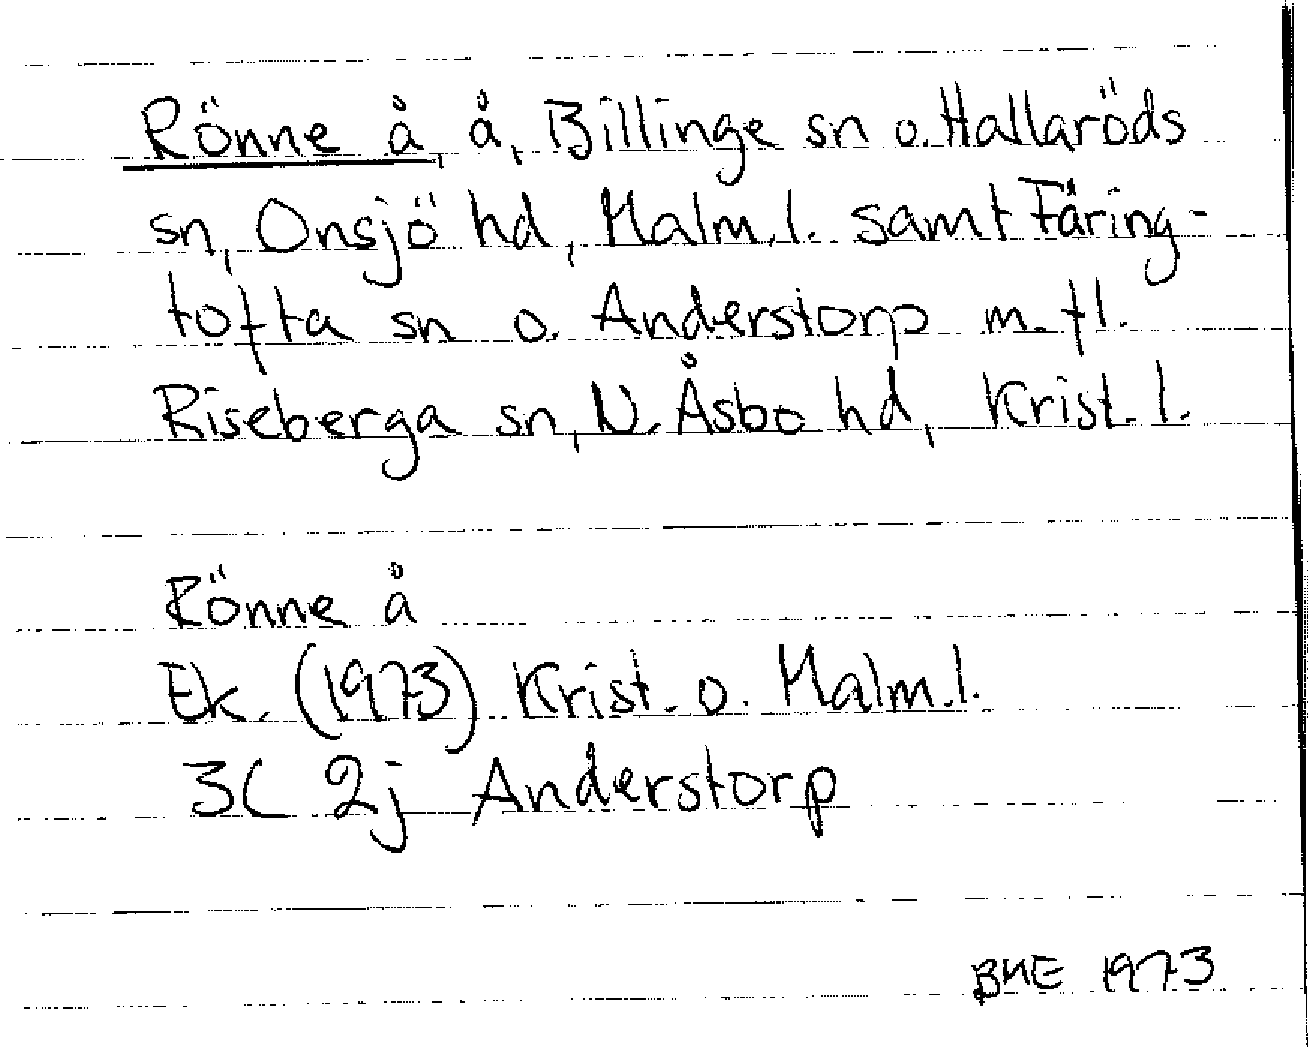 Rönne å, å, Billinge sn o. Hallaröds
sn, Onsjö hd, Malm.l. samt Färing-
tofta sn o. Anderstorp m.fl.
Riseberga sn, N. Åsbo hd, Krist. l.
Rönne å
Ek. (1973) Krist. o. Malm.l.
3C 2j Anderstorp
BHE 1973